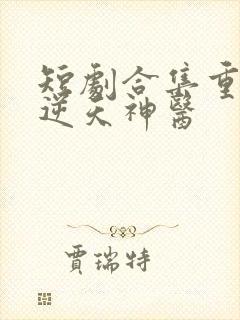 短劇合集重
逆天神醫
賈瑞特